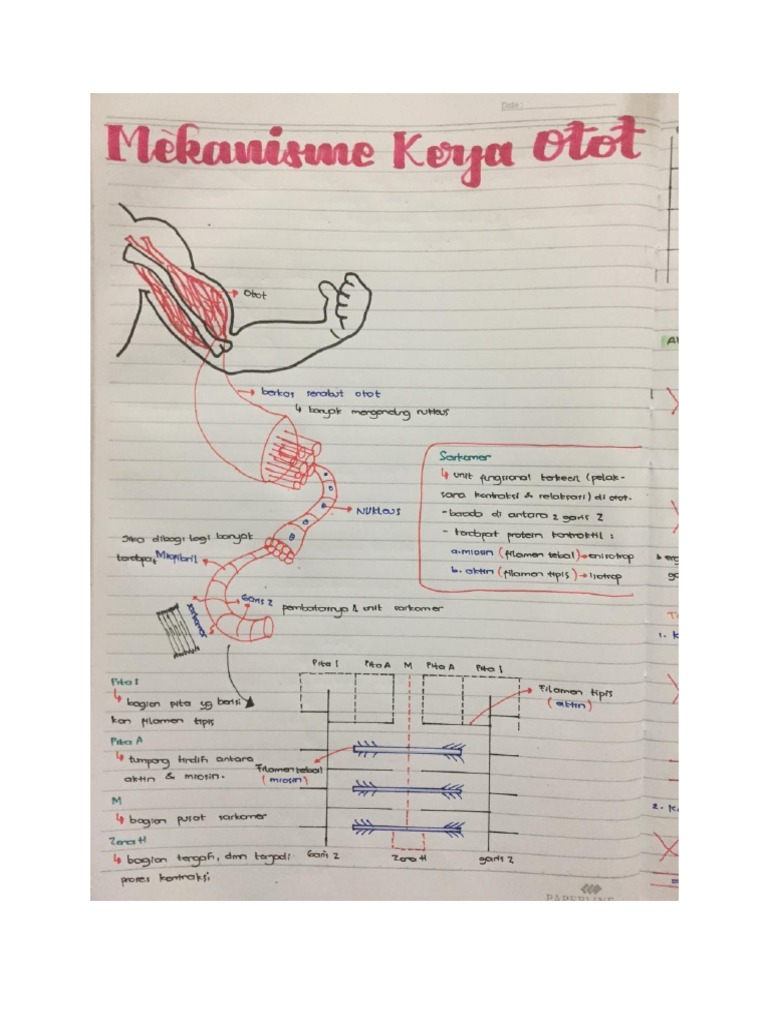 Date :
Mekanisme Kerja Otot
Otot
berkas serabut otot
↳ banyak mengandung nukleus
Nukleus
Jika dibagi lagi banyak
terdapat Miofibril
Garis Z
pembatasnya & unit sarkomer
sarkomer
Sarkomer
↳ unit fungsional terkecil (pelak-
sana kontraksi & relaksasi) di otot.
- berada di antara 2 garis Z
- terdapat protein kontraktil :
a. miosin (filamen tebal) → anisotrop
b. aktin (filamen tipis) → isotrop
Pita I Pita A M Pita A Pita I
Filamen tipis
(aktin)
Pita I
↳ bagian pita yg berisi
kan filamen tipis
Pita A
↳ tumpang tindih antara
aktin & miosin.
Filamen tebal
(miosin)
M
↳ bagian pusat sarkomer
Zona H
↳ bagian tengah, dmn terjadi
proses kontraksi
Garis Z Zona H garis Z
1. K
2. K
PAPERLINE